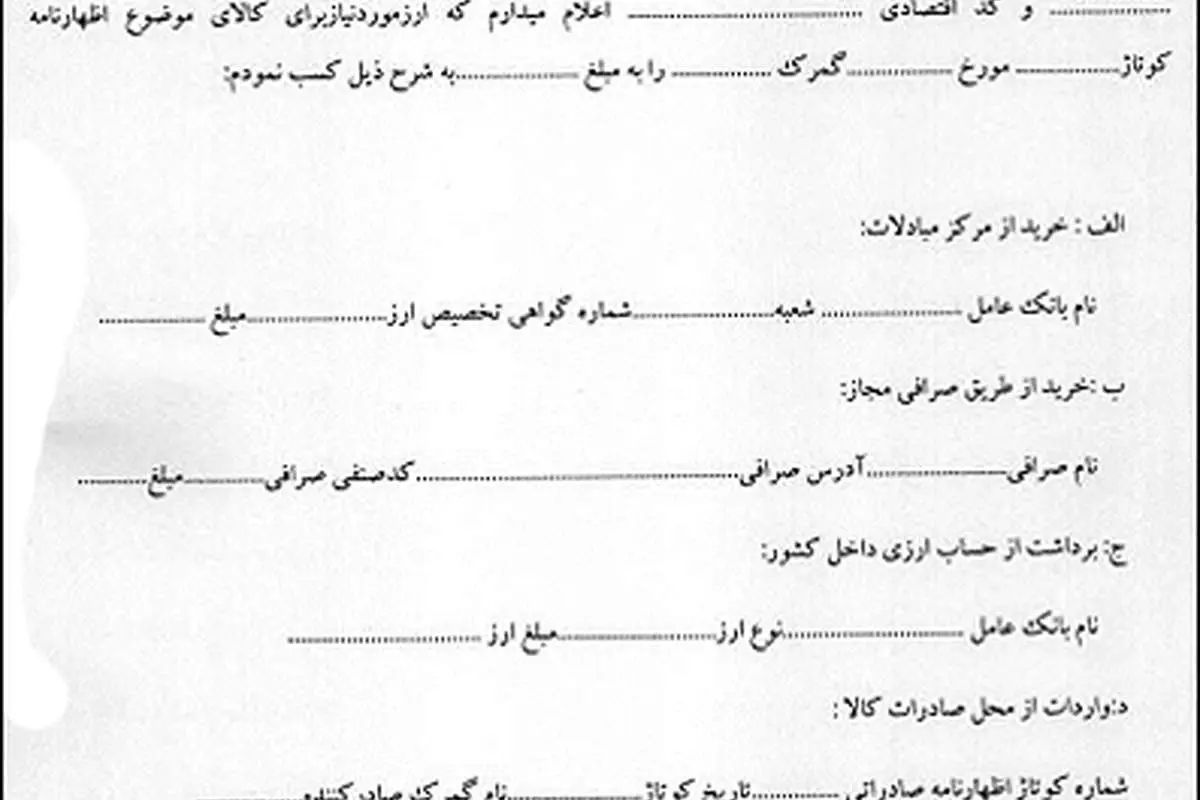 .................... و کد اقتصادی ........................................ اعلام میدارم که ارزموردنیازبرای کالای موضوع اظهارنامه
کوتاژ.................. مورخ ..................گمرک ................. را به مبلغ .....................به شرح ذیل کسب نمودم:
الف : خرید از مرکز مبادلات:
نام بانک عامل ........................ شعبه........................شماره گواهی تخصیص ارز........................مبلغ ..................
ب :خرید از طریق صرافی مجاز:
نام صرافی........................آدرس صرافی......................................................کدصنفی صرافی..............مبلغ............
ج: برداشت از حساب ارزی داخل کشور:
نام بانک عامل ..............................نوع ارز...........................مبلغ ارز .................................
د:واردات از محل صادرات کالا :
شماره کوتاژ اظهارنامه صادراتی ...............تاریخ کوتاژ.......................نام گمرک صادرکننده..................